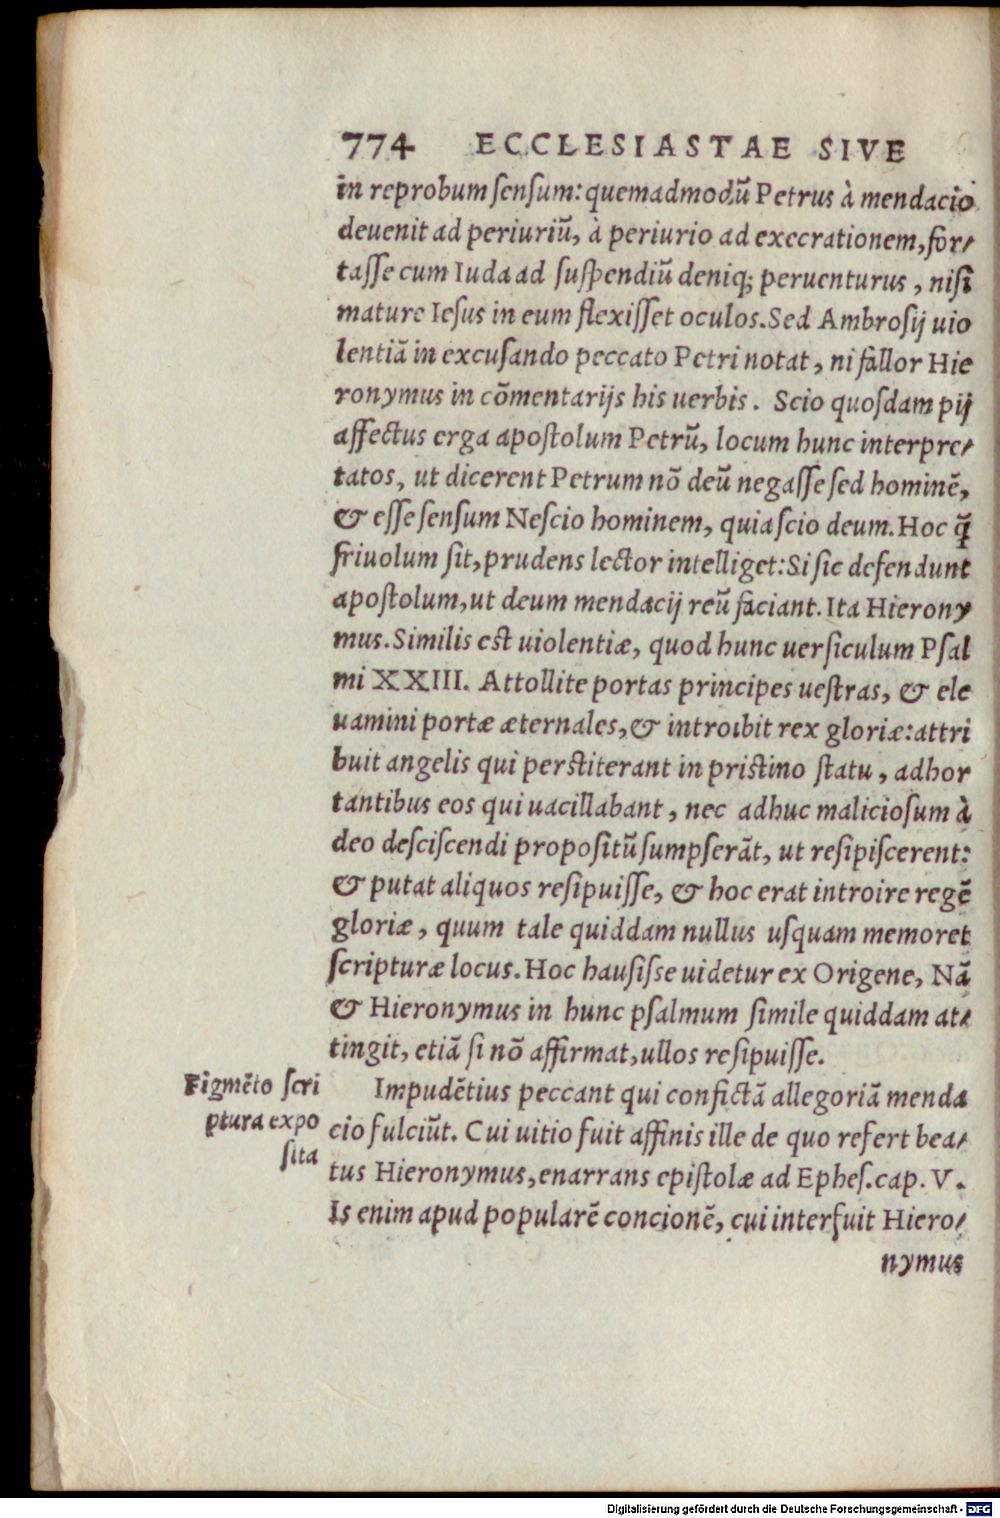 774 ECCLESIASTAE SIVE
in reprobum ſenſum: quemadmodū Petrus à mendacio
deuenit ad periuriū, à periurio ad execrationem, for⸗
taſſe cum Iuda ad ſuſpendiū deniq; peruenturus, niſi
mature Ieſus in eum flexiſſet oculos. Sed Ambroſij uio
lentiā in excuſando peccato Petri notat, ni fallor Hie
ronymus in cōmentarijs his uerbis. Scio quoſdam pij
affectus erga apoſtolum Petrū, locum hunc interpre⸗
tatos, ut dicerent Petrum nō deū negaſſe ſed hominē,
& eſſe ſenſum Neſcio hominem, quia ſcio deum. Hoc q̃
friuolum ſit, prudens lector intelliget: Si ſic defendunt
apoſtolum, ut deum mendacij reū faciant. Ita Hierony
mus. Similis eſt uiolentiæ, quod hunc uerſiculum Pſal
mi XXIII. Attollite portas principes ueſtras, & ele
uamini portæ æternales, & introibit rex gloriæ: attri
buit angelis qui perſtiterant in priſtino ſtatu, adhor
tantibus eos qui uacillabant, nec adhuc malicioſum à
deo deſciſcendi propoſitū ſumpſerāt, ut reſipiſcerent:
& putat aliquos reſipuiſſe, & hoc erat introire regē
gloriæ, quum tale quiddam nullus uſquam memoret
ſcripturæ locus. Hoc hauſiſse uidetur ex Origene, Nā
& Hieronymus in hunc pſalmum ſimile quiddam at⸗
tingit, etiā ſi nō affirmat, ullos reſipuiſſe.
Figmēto ſcri
ptura expo
ſita
Impudētius peccant qui confictā allegoriā menda
cio fulciūt. Cui uitio fuit affinis ille de quo refert bea⸗
tus Hieronymus, enarrans epiſtolæ ad Epheſ. cap. V.
Is enim apud popularē concionē, cui interfuit Hiero⸗
nymus
Digitalisierung gefördert durch die Deutsche Forschungsgemeinschaft - DFG